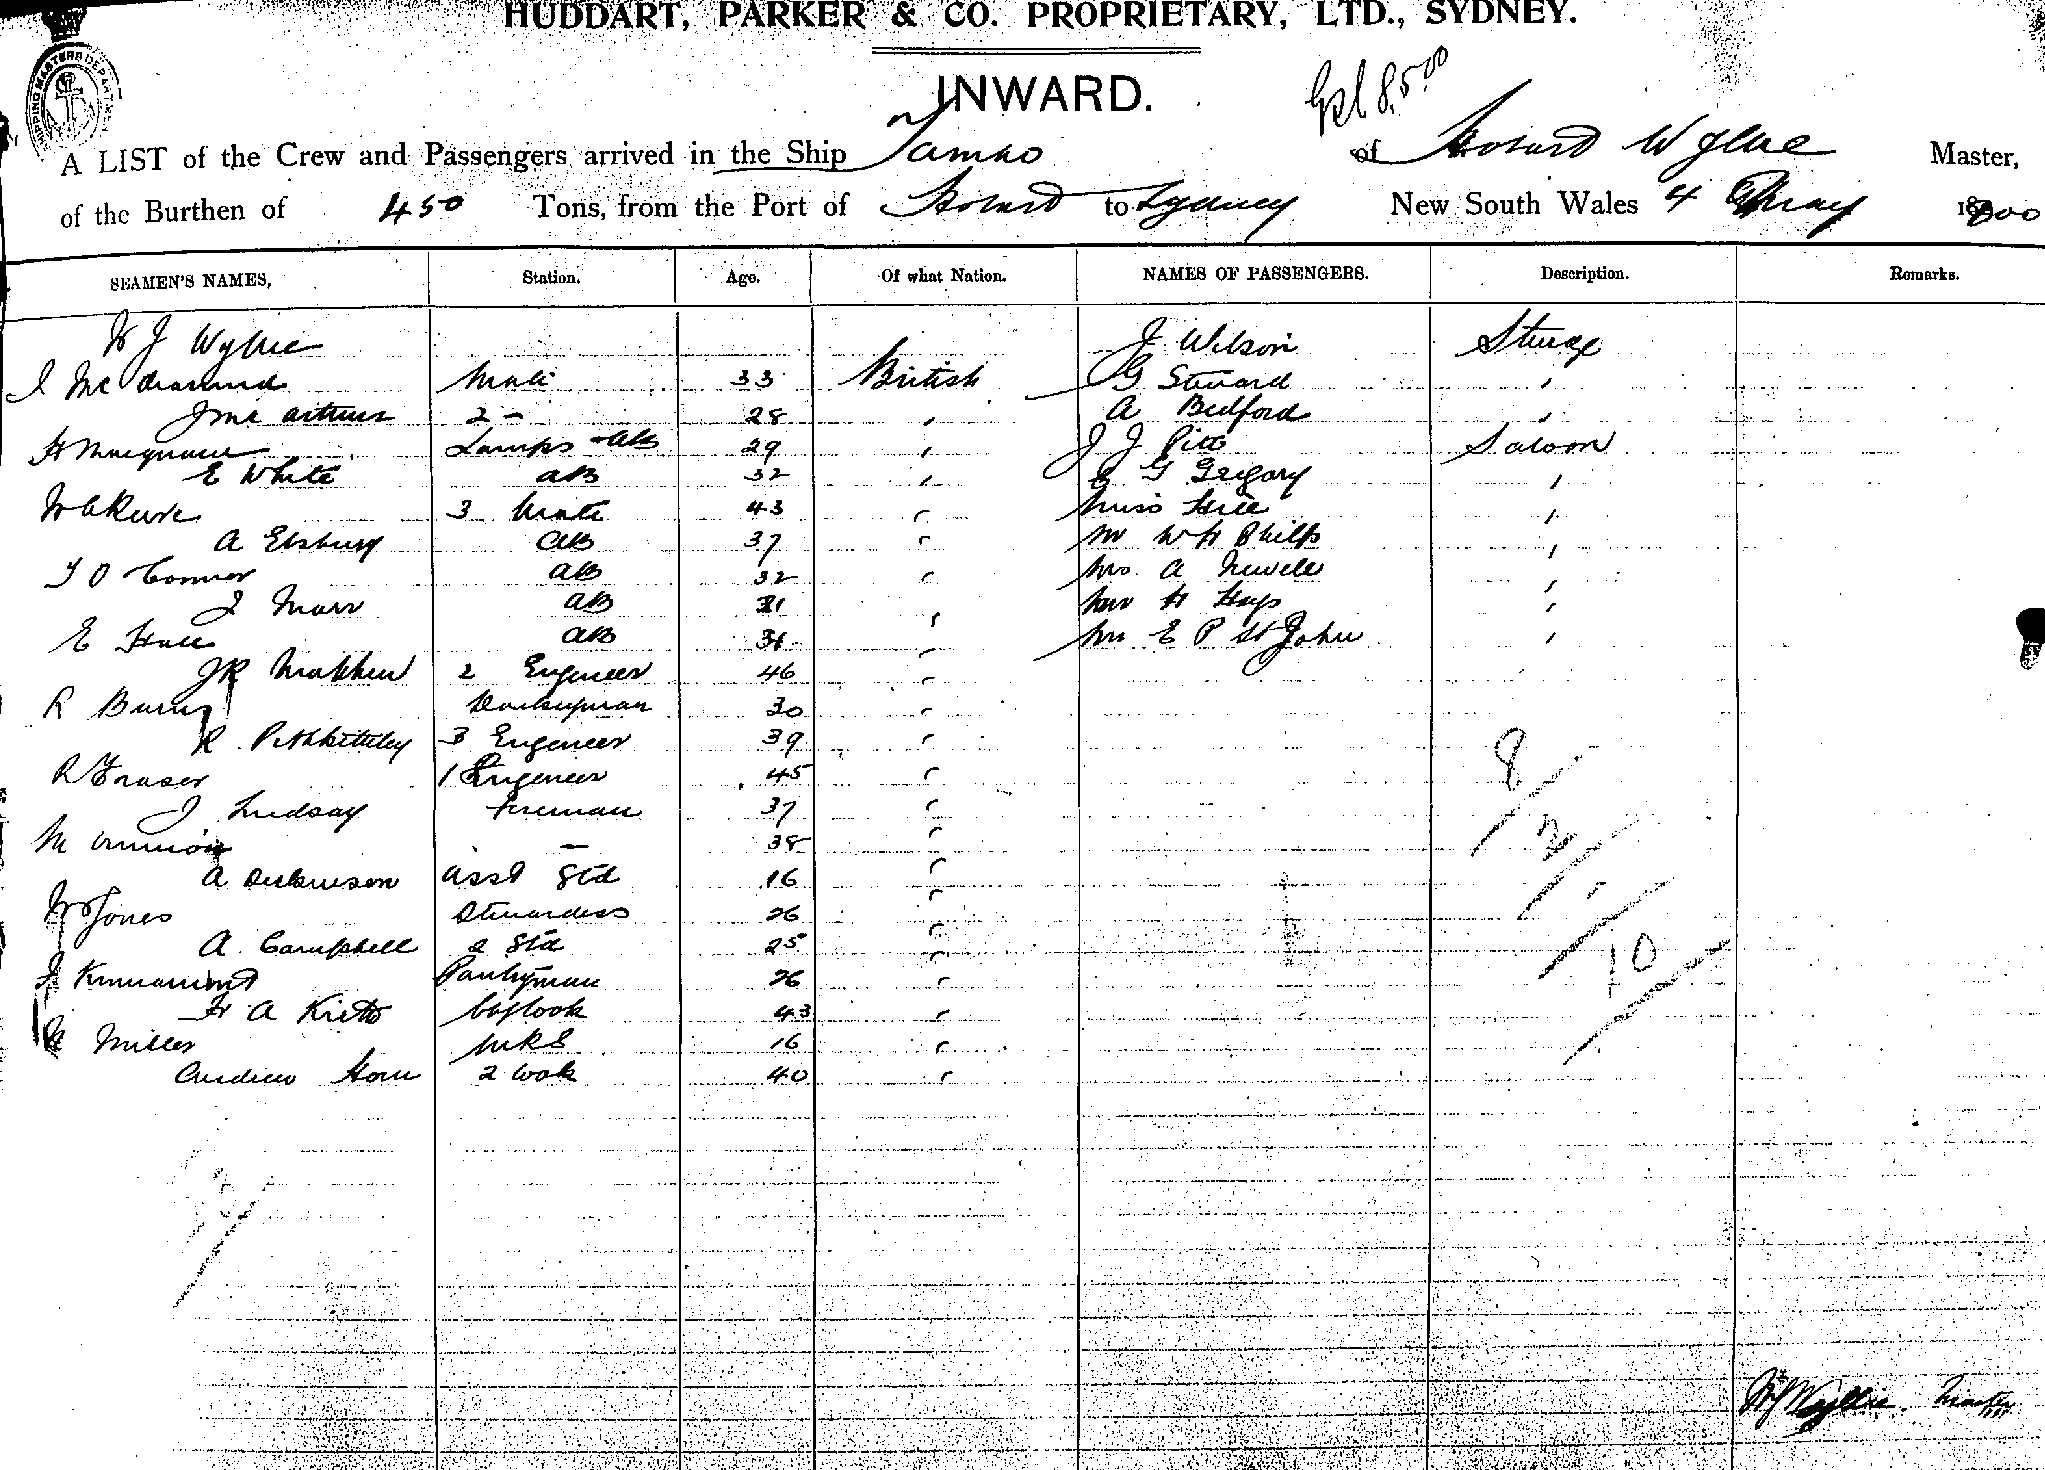 HUDDART, PARKER & CO. PROPRIETARY, LTD., SYDNEY.
INWARD.
A LIST of the Crew and Passengers arrived in the Ship Tambo of Hobart Wyllie Master,
of the Burthen of 450 Tons, from the Port of Hobart to Sydney New South Wales 4 May 1900
SEAMEN'S NAMES, Station. Age. Of what Nation. NAMES OF PASSENGERS. Description. Remarks.
W J Wyllie J Wilson Steerage
Mate 33 British G Steward "
J McArthur 2 - 28 " A Bedford "
H Macquarie Lamps & AB 29 " J J Pitt Saloon
E White AB 32 " G Gregory "
3 Mate 43 " Miss Hill "
A Elsbury AB 37 " Mr W H Philp "
T O Connor AB 32 " Mrs A Newell "
J Marr AB 31 " H Hays "
E Hall AB " E P St John "
J R Matthew 2 Engineer 46 "
R Burns Donkeyman 30 "
R Pethketheley 3 Engineer 39 "
R Fraser 1 Engineer 45 "
J Lindsay Fireman 37 "
M - 38 "
A Dickinson Asst Std 16 "
Jones Stewardess 26 "
A Campbell 2 Std 25 "
Pantryman 26 "
A Kirtto Cook 43 "
Miller 16 "
Andrew Horn 2 Cook 40 "
8
2
10
W J Wyllie Master